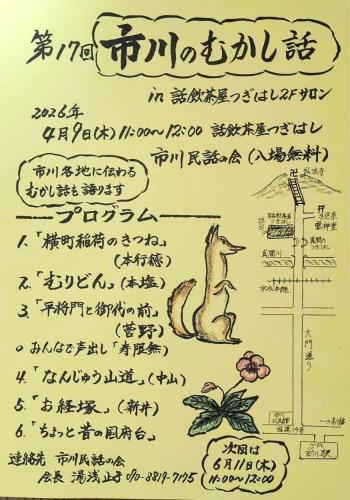 第17回 市川のむかし話
in 話飲茶屋つぎはし2Fサロン
2026年
4月9日(木)11:00〜12:00 話飲茶屋つぎはし
市川民話の会(入場無料)
市川各地に伝わる
むかし話を語ります
プログラム
1.「横町稲荷のきつね」
(本行徳)
2.「むりどん」(本塩)
3.「平将門と御代の前」
(菅野)
○みんなで声出し「寿限無」
4.「なんじゅう山道」(中山)
5.「お経塚」(新井)
6.「ちょっと昔の国府台」
連絡先 市川民話の会
会長 湯浅止子 090-3819-7175
次回は
6月11日(木)
11:00〜12:00
卍
弘法寺
手児奈
霊神堂
真間の
つぎはし
真間川
京成本線
大門通り
市川
国道14号
JR
市川駅